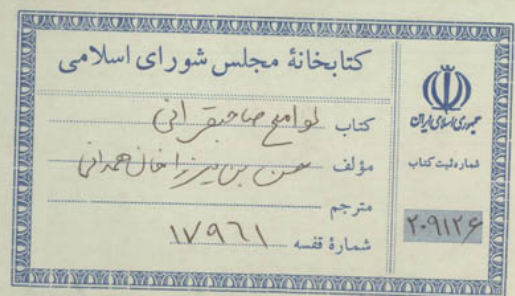 کتابخانهٔ مجلس شورای اسلامی
کتاب لوامع صاحبقرانی
مؤلف محسن بن میرزا خان همدانی
مترجم
شمارهٔ قفسه ۱۷۹۶۱
جمهوری اسلامی ایران
شماره ثبت کتاب
۲۰۹۱۲۶